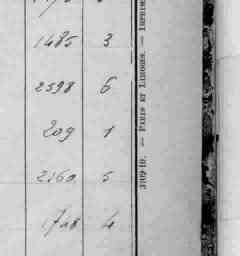 1485 3
2598 6
209 1
2160 5
4
31094D. — PARIS ET LIMOGES. — IMPRIM